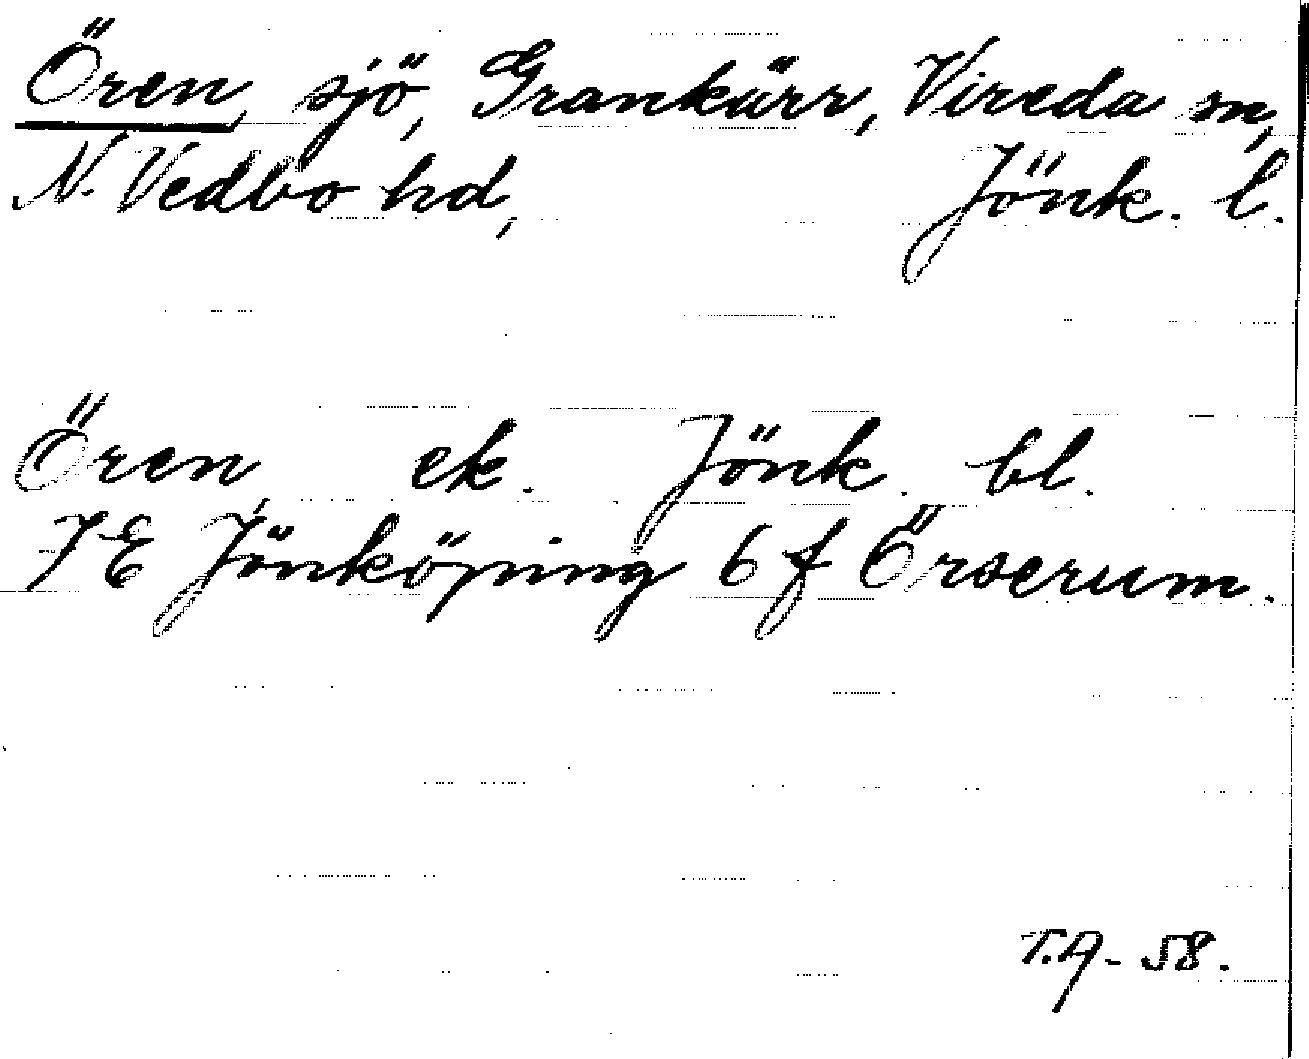 Ören, sjö, Grankärr, Vireda sn,
N. Vedbo hd, Jönk. l.
Ören, ek. Jönk. bl.
7E Jönköping 6 f Örserum.
T.A- 58.